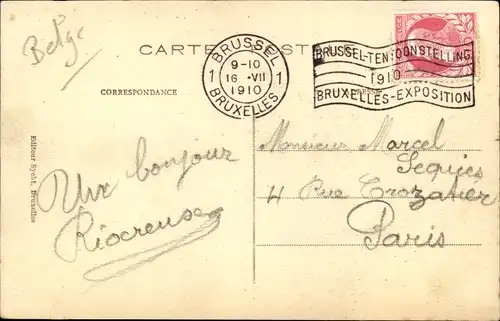 Belge
CARTE POSTALE
BRUSSEL
9-10
1 16 -VII 1
1910
BRUXELLES
BRUSSEL-TENTOONSTELLING
1910
BRUXELLES-EXPOSITION
CORRESPONDANCE
Un bonjour
Riocreuse
Editeur Sycht, Bruxelles
Monsieur Marcel
Sequies
4 Rue Crozatier
Paris